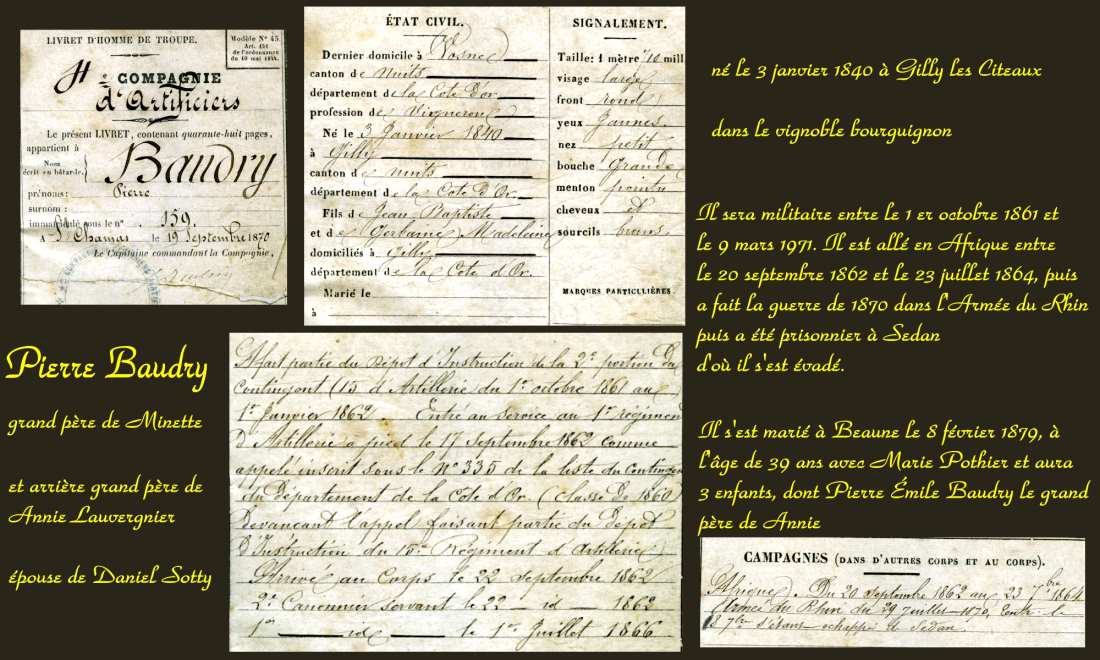 LIVRET D'HOMME DE TROUPE.
Modèle N° 45
Art. 451
de l'ordonnance
du 10 mai 1844.
4e COMPAGNIE
d'Artificiers
Le présent LIVRET, contenant quarante-huit pages,
appartient à
Nom
écrit en bâtarde.
Baudry
prénoms: Pierre
surnom:
immatriculé sous le n° 159
A St Chamas le 19 Septembre 1870
Le Capitaine commandant la Compagnie,
ÉTAT CIVIL.
Dernier domicile à Vosne
canton de Nuits
département de la Cote d'or
profession de Vigneron
Né le 3 Janvier 1840
à Gilly
canton de Nuits
département de la Cote d'Or.
Fils de Jean Baptiste
et de Madeleine
domiciliés à Gilly
département de la Cote d'Or.
Marié le
à
SIGNALEMENT.
Taille: 1 mètre 710 mill
visage large
front rond
yeux Jaunes
nez petit
bouche Grande
menton pointu
cheveux et
sourcils bruns
MARQUES PARTICULIÈRES.
né le 3 janvier 1840 à Gilly les Citeaux
dans le vignoble bourguignon
Il sera militaire entre le 1 er octobre 1861 et
le 9 mars 1971. Il est allé en Afrique entre
le 20 septembre 1862 et le 23 juillet 1864, puis
a fait la guerre de 1870 dans l'Armée du Rhin
puis a été prisonnier à Sedan
d'où il s'est évadé.
Il s'est marié à Beaune le 8 février 1879, à
l'âge de 39 ans avec Marie Pothier et aura
3 enfants, dont Pierre Émile Baudry le grand
père de Annie
Pierre Baudry
grand père de Minette
et arrière grand père de
Annie Lauvergnier
épouse de Daniel Sotty
A fait partie du Dépot d'Instruction de la 2e portion du
Contingent (15 d'Artillerie du 1er octobre 1861 au
1er Janvier 1862. Entré au service au 1er régiment
d'Artillerie a pied le 17 Septembre 1862 comme
appelé inscrit sous le N° 335 de la liste du contingent
du Département de la Cote d'Or. (classe de 1860)
Devancant l'appel faisant partie du depot
d'Instruction du 15me Régiment d'Artillerie)
Arrivé au Corps le 22 septembre 1862
2e Canonnier servant le 22 — id — 1862
1er — id — le 1er Juillet 1866
CAMPAGNES (DANS D'AUTRES CORPS ET AU CORPS).
Afrique. Du 20 septembre 1862 au 23 7bre 1864
Armée du Rhin du 29 Juillet 1870, le
8 7bre s'étant echappé de Sedan.